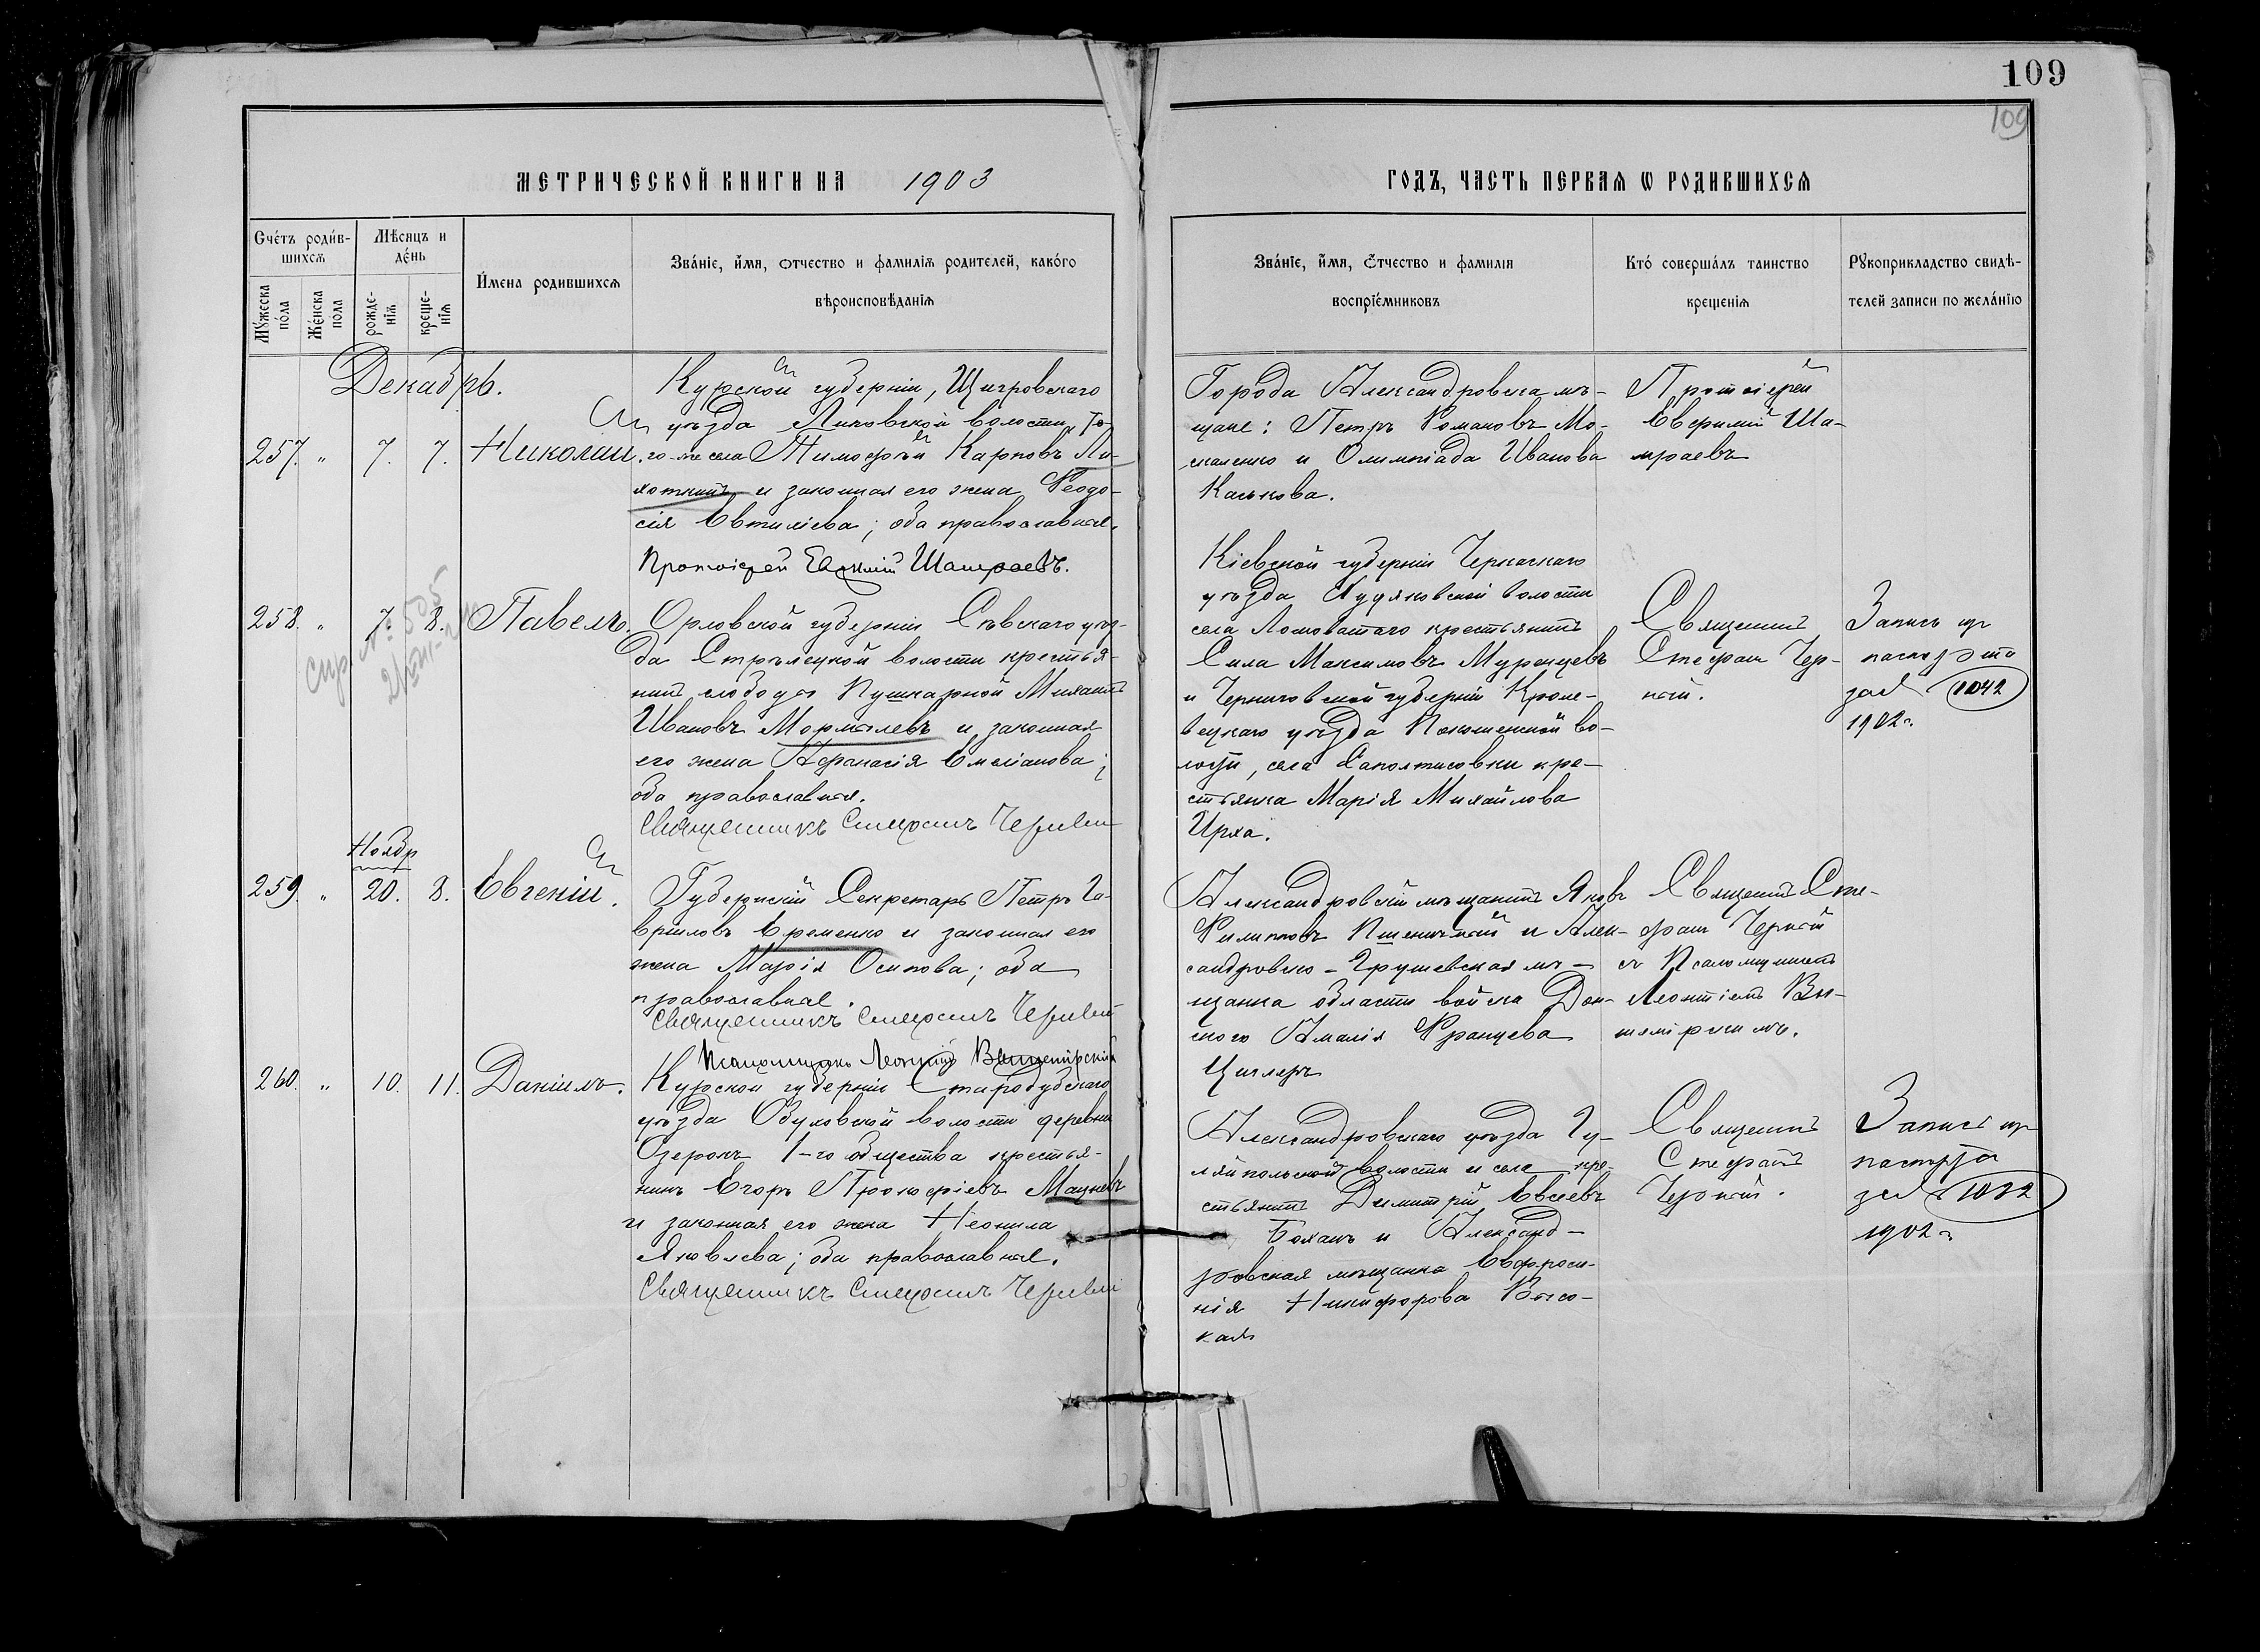 109
109
МЕТРИЧЕСКОЙ КНИГИ НА 1903
ГОДЪ, ЧАСТЬ ПЕРВАЯ Ѡ РОДИВШИХСЯ
Счéтъ роди́вшихся
Мѣсяцъ и дéнь
И́мена родившихся
Звáнїе, и́мя, отчество и фамилїя родителей, какóго
вѣроисповѣданїя
Мýжеска пóла
Жéнска пола
рожденїя
крещенїя
Звáнїе, и́мя, ѻ́тчество и фамилїя
воспрїéмниковъ
Ктó совершáлъ таинство
крещенїя
Рꙋкоприкладство свидѣтелей записи по желáнїю
Декабрь.
257. " 7. 7. Николай.
Курской губерніи, Щигровскаго
уѣзда Липовской волости, то-
го-же села Тимофѣй Карповъ
и законная его жена Ѳеодо-
сія Евтихіева; оба православные.
Протоіерей Евѳимій Шамраевъ.
Города Александровска мѣ-
щане: Петръ Романовъ Мо-
скаленко и Олимпіада Иванова
Каськова.
Протоіерей
Евфимій Ша-
мраевъ
258. " 7. 8. Павелъ.
спр. № 505
Орловской губерніи Сѣвскаго уѣз-
да Стрѣлецкой волости крестья-
нинъ слободы Пушкарной Михаилъ
Ивановъ Мормылевъ и законная
его жена Афанасія Емеліанова;
оба православные.
Священникъ Стефанъ Черный
Кіевской губерніи Черкаскаго
уѣзда Худяковской волости
села Ломоватаго крестьянинъ
Сила Максимовъ Муренцевъ
и Черниговской губерніи Кроле-
вецкаго уѣзда волости, села кре-
стьянка Марія Михайлова
Ирха.
Священникъ
Стефанъ Чер-
ный.
Запись по
паспорту
за № 1042
1902 г.
Ноябр
259. " 20. 8. Евгеній.
Губернскій Секретарь Петръ Га-
вриловъ Еременко и законная его
жена Марія Осипова; оба
православные.
Священникъ Стефанъ Черный
Псаломщикъ Леонтій
Александровскій мѣщанинъ Яковъ
Филиповъ Пшеничный и Алек-
сандровско-Грушевская мѣ-
щанка области войска Дон-
ского Амалія Францева
Циглеръ
Священникъ Сте-
фанъ Черный
съ Псаломщикомъ
Леонтіемъ
260. " 10. 11. Даніилъ.
Курской губерніи Стародубскаго
уѣзда волости деревни
1-го общества крестья-
нинъ Егоръ Прокофіевъ Мацневъ
и законная его жена Неонила
Яковлева; оба православные.
Священникъ Стефанъ Черный
Александровскаго уѣзда Гу-
ляйпольской волости и села кре-
стьянинъ Димитрій Евсеевъ
Боханъ и Александ-
ровская мѣщанка Евфроси-
нія Никифорова Высо-
кая
Священникъ
Стефанъ
Черный.
Запись по
паспорту
за № 1032
1902 г.